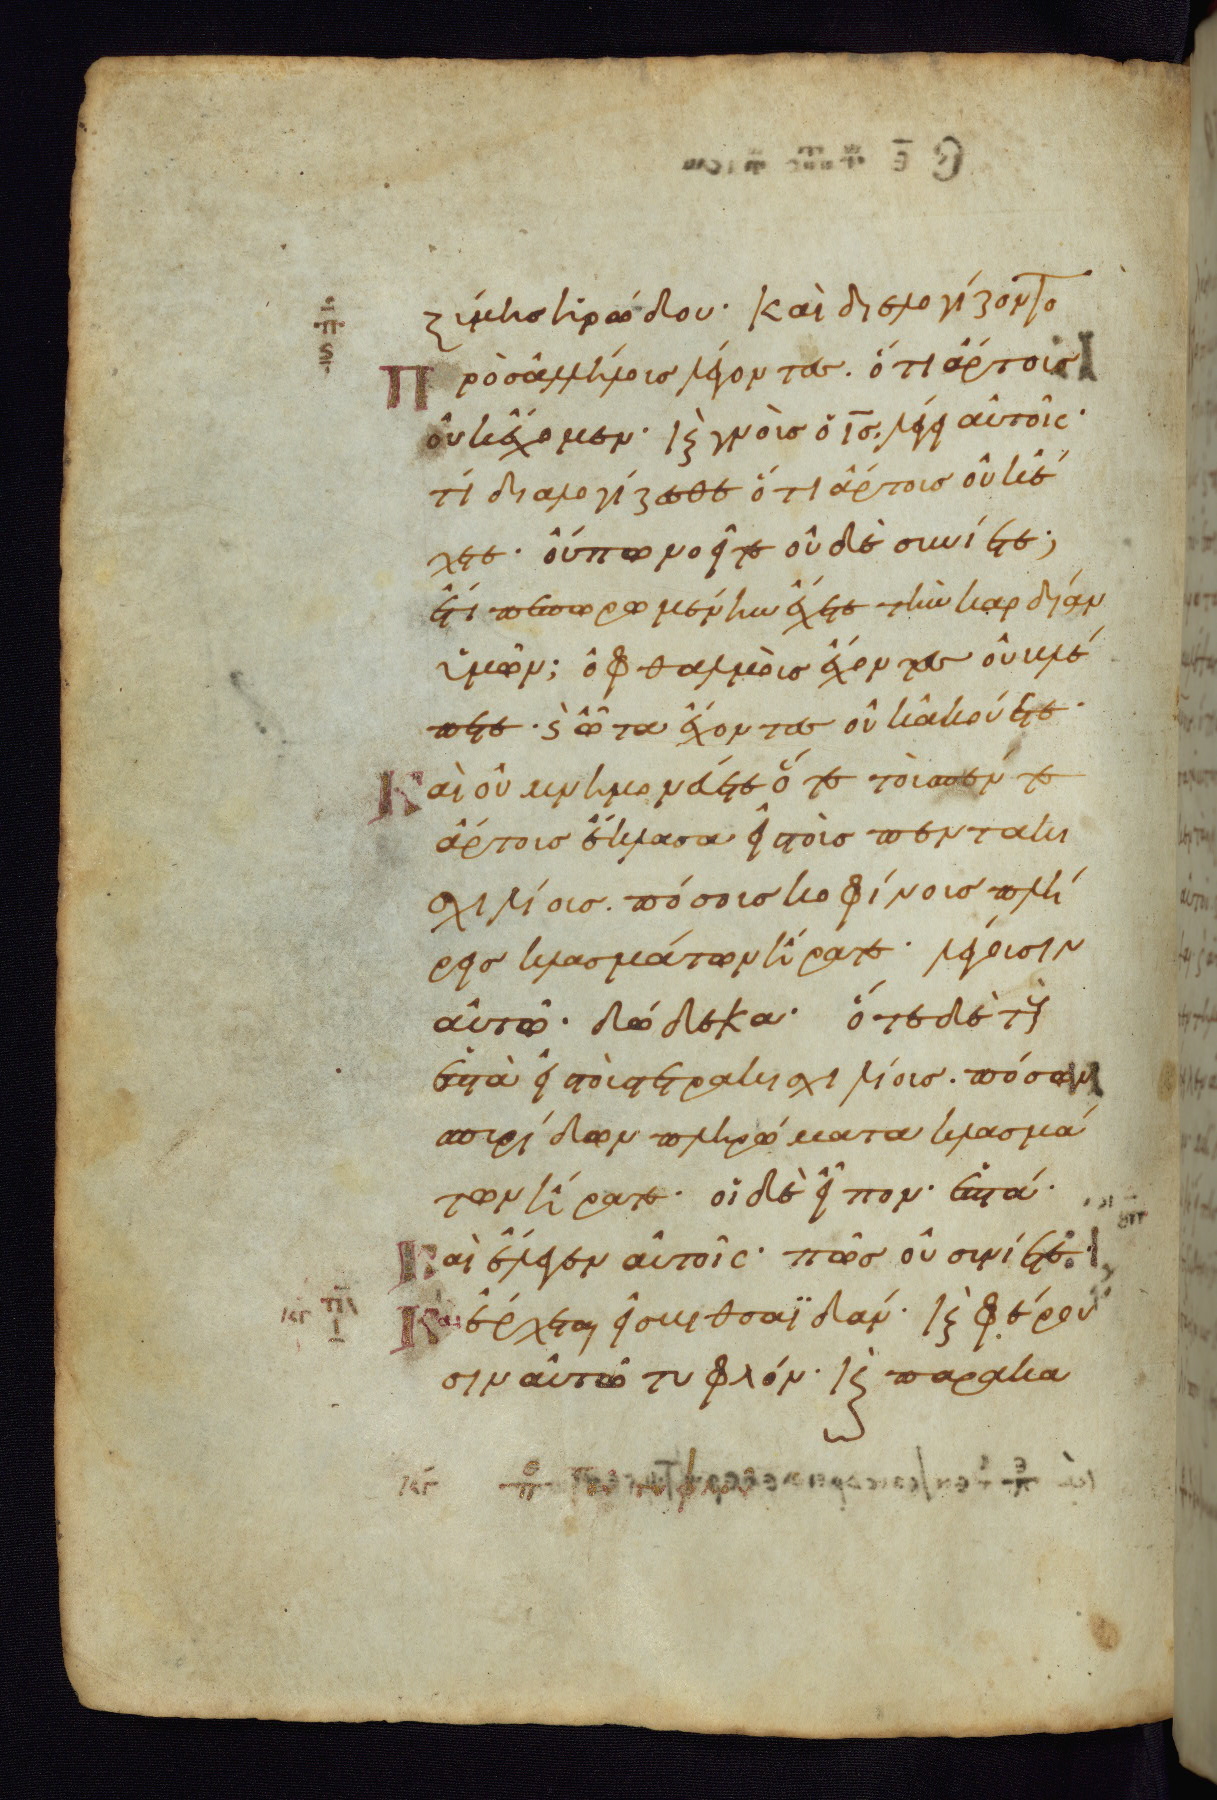 ζύμης ἡρώδου· Καὶ διελογίζοντο
Πρὸς ἀλλήλους λέγοντες· ὅτι ἄρτους
οὐκ ἔχομεν· κ γνοὺς ὁ ις λέγει αὐτοῖς·
τί διαλογίζεσθε ὅτι ἄρτους οὐκ ἔ
χετε· οὔπω νοεῖτε οὐδὲ συνίετε;
ἔτι πεπωρωμένην ἔχετε τὴν καρδίαν
ὑμῶν; ὀφθαλμοὺς ἔχοντες οὐ βλέ
πετε· κ ὦτα ἔχοντες οὐκ ἀκούετε·
Καὶ οὐ μνημονεύετε ὅτε τοὺς πέντε
ἄρτους ἔκλασα εἰς τοὺς πεντακι
σχιλίους· πόσους κοφίνους πλή
ρεις κλασμάτων ἤρατε· λέγουσιν
αὐτῶ· δώδεκα· ὅτε δὲ τοὺς
ἑπτὰ εἰς τοὺς τετρακισχιλίους· πόσων
σπυρίδων πληρώματα κλασμά
των ἤρατε· οἱ δὲ εἶπον· ἑπτά·
Καὶ ἔλεγεν αὐτοῖς· πῶς οὐ συνίετε·
Καὶ ἔρχεται εἰς βηθσαϊδάν· κ φέρου
σιν αὐτῶ τυφλόν· κ παρακα